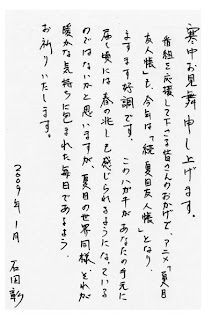 寒中お見舞申し上げます。
番組を応援して下さる皆さんのおかげで、アニメ「夏目
友人帳」も、今気は「続 夏目友人帳」となり
ますます好調です。 このハガキがあなたの手元に
届く頃には春の兆しも感じられるようになっている
のではないかと思いますが、夏目の世界同様、それが
暖かな気持ちに包まれた毎日であるよう、
お祈りいたします。
2009年 1月
石田彰